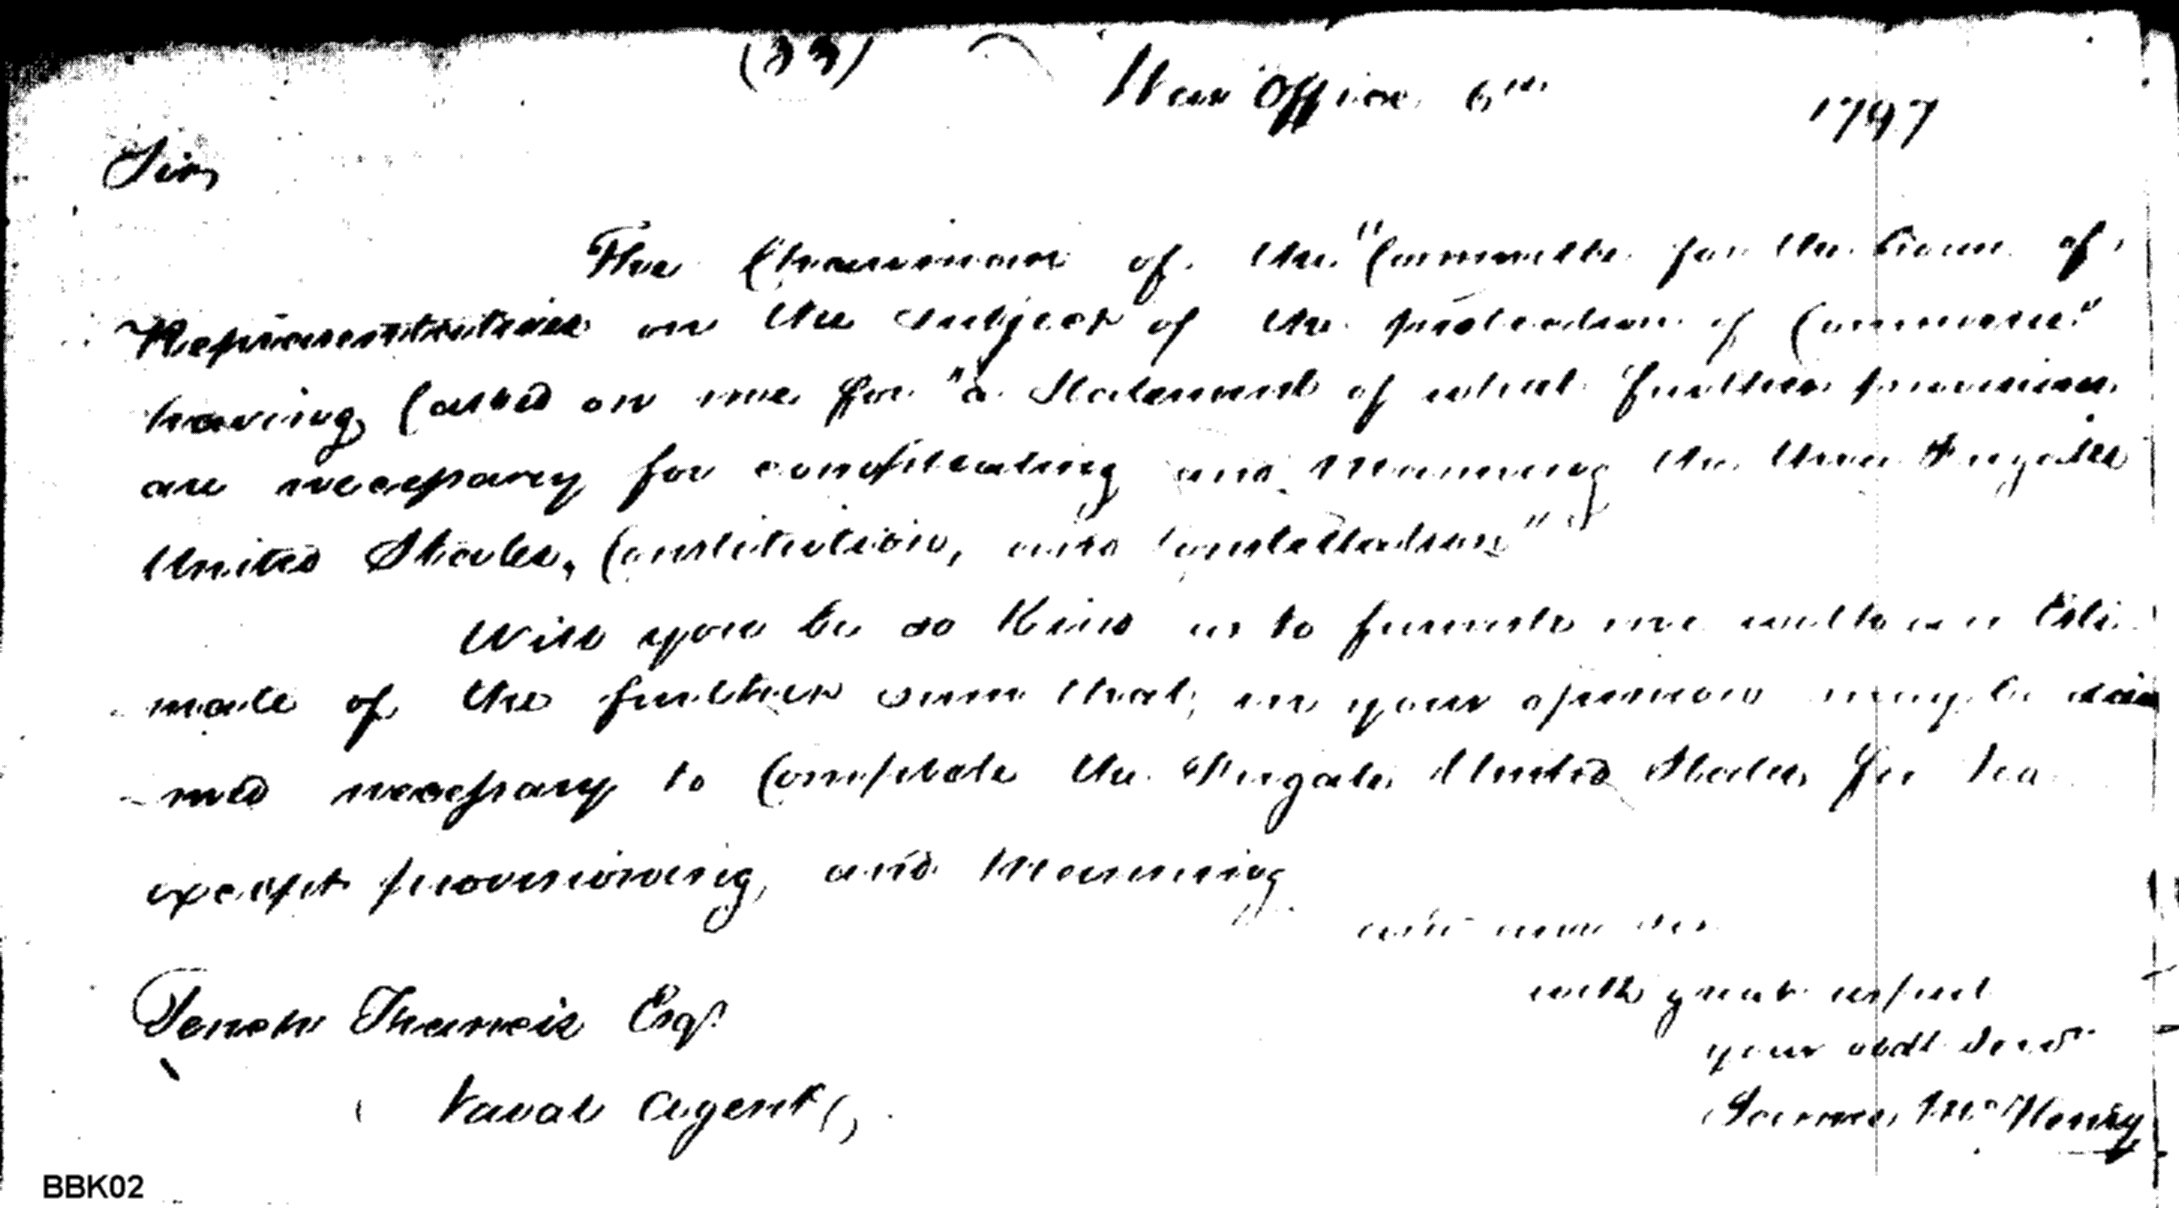 (33)
War Office 6th 1797
Sir,
The Chairman of the "Committee for the House of
Representatives on the subject of the protection of Commerce"
having Called on me for "a Statement of what further provisions
are necessary for completing and Manning the three Frigates
United States, Constitution, and Constellation"
Will you be so Kind as to furnish me with an Esti-
mate of the further sum that, in your opinion may be dee
-med necessary to Complete the Frigate United States for Sea
except provisioning, and Manning
and am Sir
with great respect
your obdt Servt
James McHenry
Tench Francis Esqr.
Naval Agent
BBK02